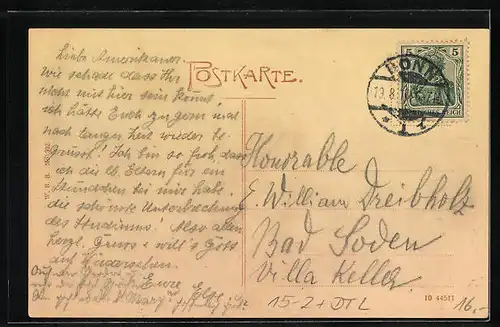 Liebe Amerikaner.
Wie schade dass Ihr
nicht mit hier sein könnt,
ich hätte Euch zu gern mal
nach langer Zeit wieder be-
grüsst! Ich bin so froh, dass
ich die lb. Eltern für ein
Stündchen bei mir habe,
die schönste Unterbrechung
des Studiums! Also allen
herzl. Gruss & will's Gott
auf Wiedersehen.
Eure
POSTKARTE.
BONN
19.8.
* 1 f
5 5
REICH
Honorable
E. William Dreibholz
Bad Soden
Villa Keller
15-2+DTL
10 44511
16,-